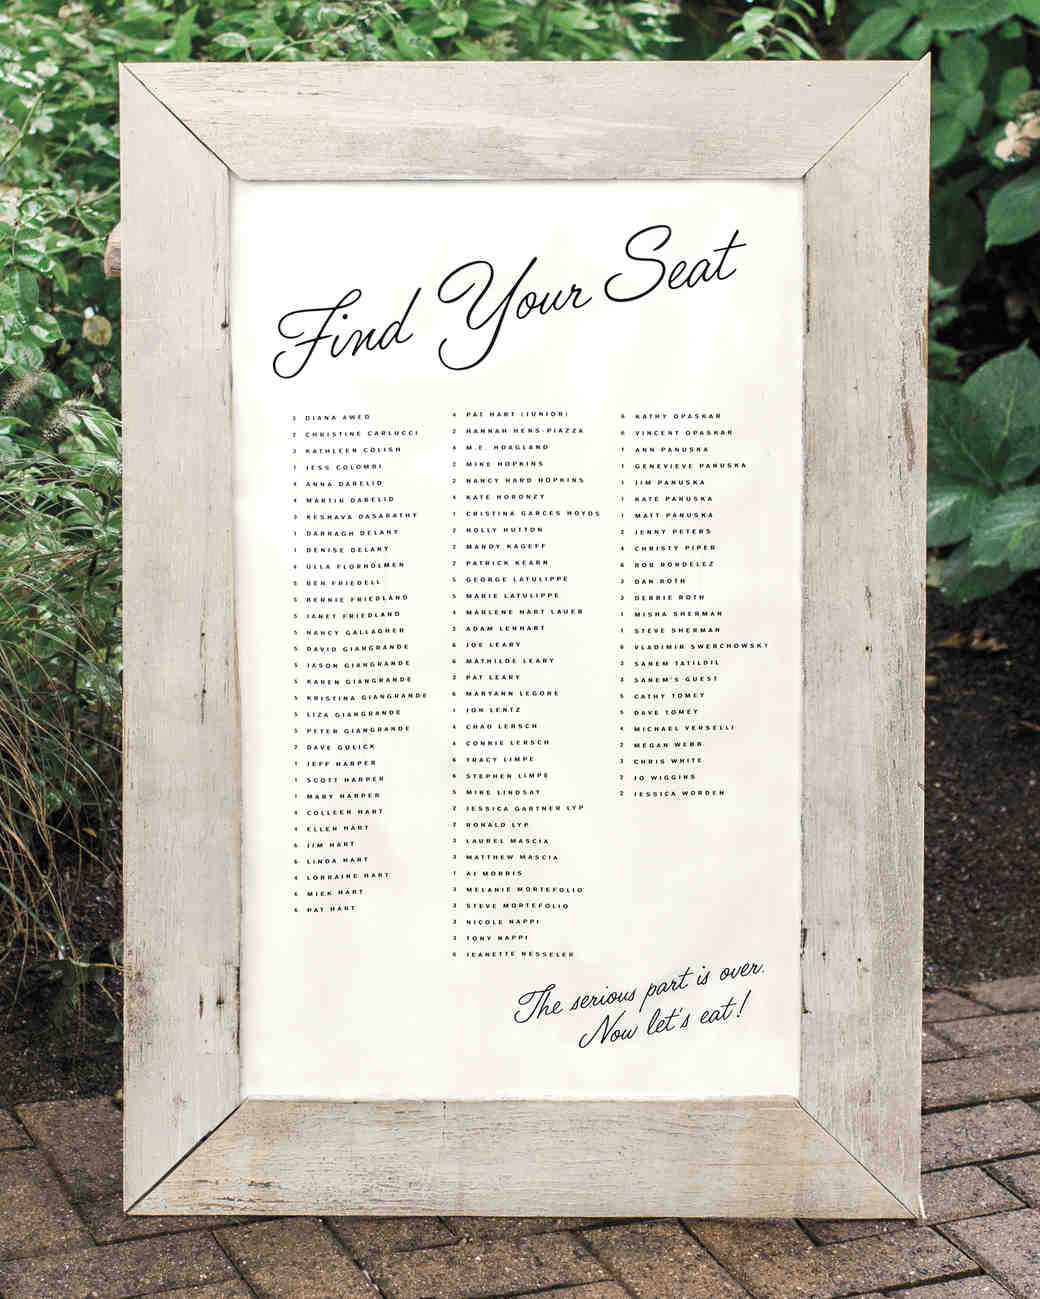 Find Your Seat
3 DIANA AWED
2 CHRISTINE CARLUCCI
3 KATHLEEN COLISH
1 JESS COLOMBI
4 ANNA DARELID
4 MARTIN DARELID
3 KESHAVA DASARATHY
1 DARRAGH DELANY
1 DENISE DELANY
4 ULLA FLORHOLMEN
5 BEN FRIEDELL
5 BERNIE FRIEDLAND
5 JANET FRIEDLAND
5 NANCY GALLAGHER
5 DAVID GIANGRANDE
5 JASON GIANGRANDE
5 KAREN GIANGRANDE
5 KRISTINA GIANGRANDE
5 LIZA GIANGRANDE
5 PETER GIANGRANDE
2 DAVE GULICK
1 JEFF HARPER
1 SCOTT HARPER
1 MARY HARPER
4 COLLEEN HART
4 ELLEN HART
6 JIM HART
6 LINDA HART
4 LORRAINE HART
6 MIEK HART
6 PAT HART
4 PAT HART (JUNIOR)
2 HANNAH HENS-PIAZZA
4 M.E. HOAGLAND
2 MIKE HOPKINS
2 NANCY HARD HOPKINS
4 KATE HORONZY
1 CRISTINA GARCES HOYOS
2 HOLLY HUTTON
2 MANDY KAGEFF
2 PATRICK KEARN
5 GEORGE LATULIPPE
5 MARIE LATULIPPE
4 MARLENE HART LAUER
3 ADAM LENHART
6 JOE LEARY
6 MATHILDE LEARY
3 PAT LEARY
6 MARYANN LEGORE
1 JON LENTZ
4 CHAD LERSCH
4 CONNIE LERSCH
6 TRACY LIMPE
6 STEPHEN LIMPE
5 MIKE LINDSAY
2 JESSICA GARTNER LYP
2 RONALD LYP
3 LAUREL MASCIA
3 MATTHEW MASCIA
1 AJ MORRIS
3 MELANIE MORTEFOLIO
3 STEVE MORTEFOLIO
3 NICOLE NAPPI
3 TONY NAPPI
6 JEANETTE NESSELER
6 KATHY OPASKAR
6 VINCENT OPASKAR
1 ANN PANUSKA
1 GENEVIEVE PANUSKA
1 JIM PANUSKA
1 KATE PANUSKA
1 MATT PANUSKA
2 JENNY PETERS
4 CHRISTY PIPER
6 BOB RONDELEZ
3 DAN ROTH
3 DEBBIE ROTH
1 MISHA SHERMAN
1 STEVE SHERMAN
6 VLADIMIR SWERCHOWSKY
3 SANEM TATILDIL
3 SANEM'S GUEST
5 CATHY TOMEY
5 DAVE TOMEY
4 MICHAEL VERSELLI
2 MEGAN WEBB
3 CHRIS WHITE
2 JO WIGGINS
2 JESSICA WORDEN
The serious part is over.
Now let's eat!